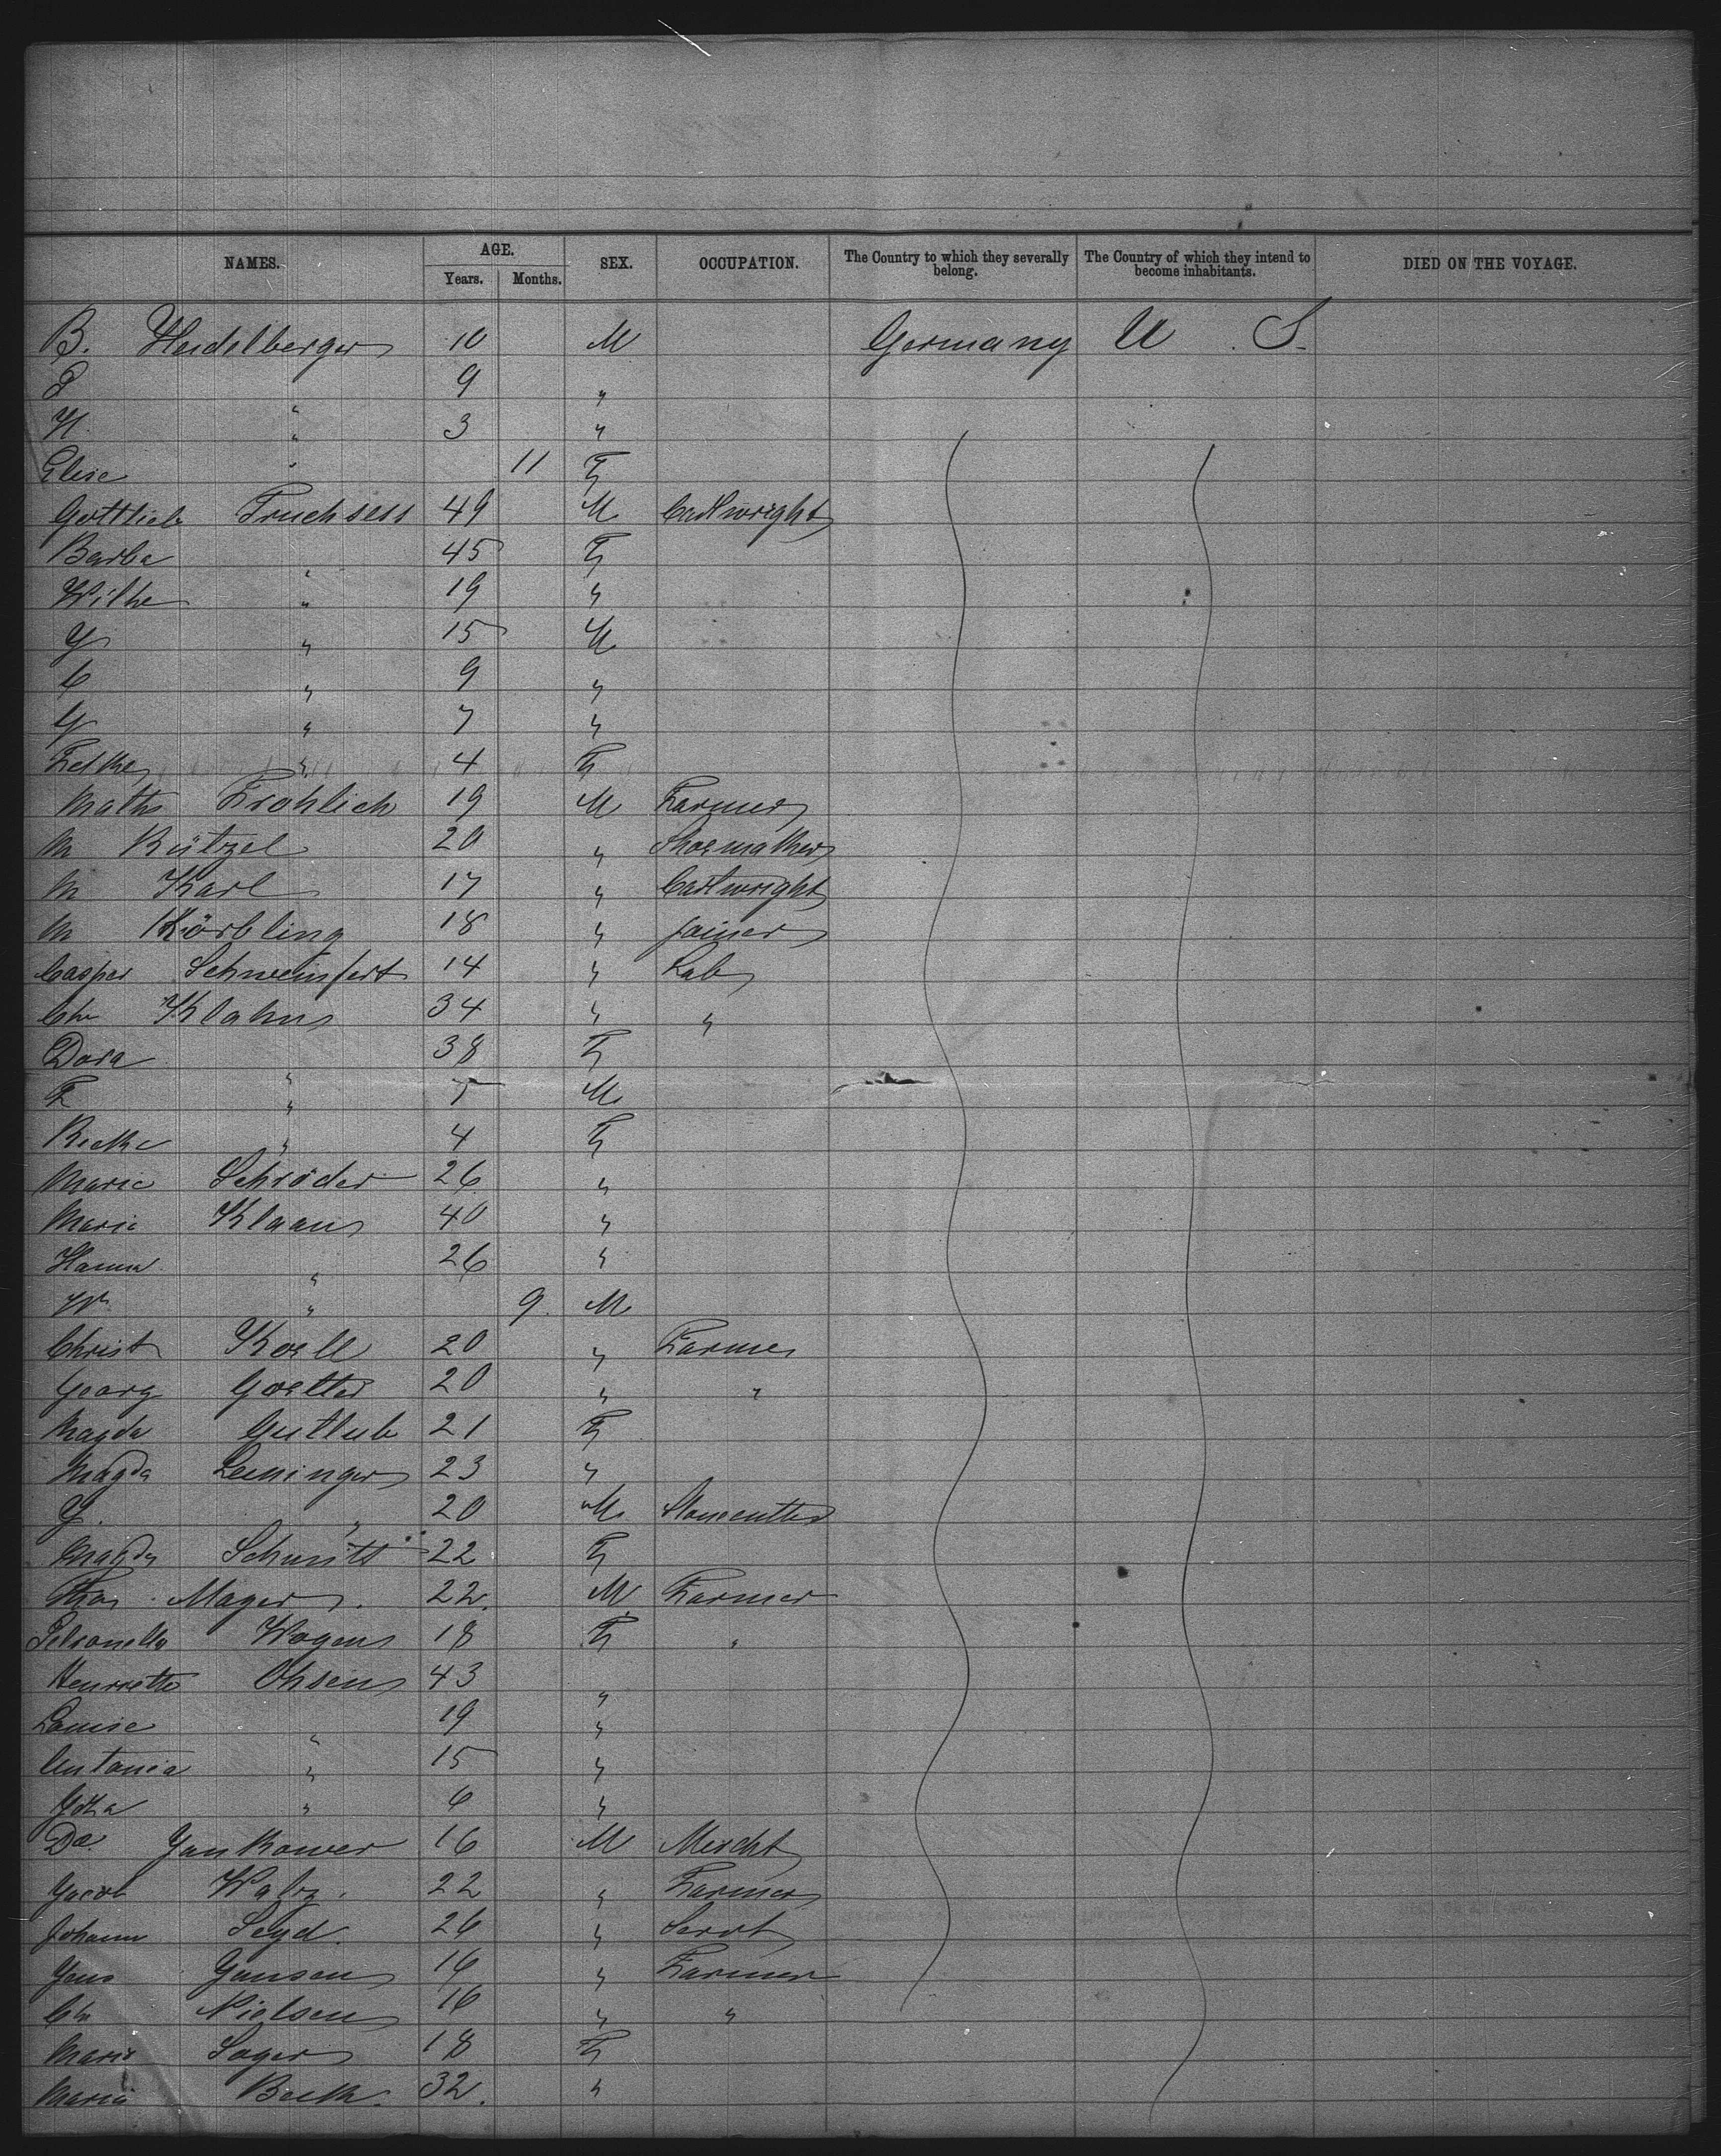 NAMES. AGE. SEX. OCCUPATION. The Country to which they severally belong. The Country of which they intend to become inhabitants. DIED ON THE VOYAGE.
Years. Months.
B. Heidelberger 10 M Germany U S.
P " 9 "
H. " 3 "
Elise " 11 F
Gottlieb Truchsess 49 M Cartwright
Barba " 45 F
Wilhe " 19 "
G " 15 M
C " 9 "
G " 7 "
" 4 F
Math Frohlich 19 M Farmer
M Kützel 20 " Shoemaker
M Karl 17 " Cartwright
M Körbling 18 " joiner
Casper Schweinfert 14 " Lab
Chr Klahns 34 " "
Dora " 38 F
F " 5 M
Rieke " 4 F
Marie Schröder 26 "
Maria Klaans 40 "
Hanna " 26 "
W " 9. M
Christ Koell 20 " Farmer
Georg Goetter 20 " "
Magda Gutlub 21 F
Magda Leininger 23 "
G. " 20 M Stonecutter
Magda Schmitt 22 F
Thos Mager 22. M Farmer
Petronella Wogens 18 F "
Henriette Ohsens 43 "
Louise " 19 "
Antonia " 15 "
" 6 "
De. Jankower 16 M Mercht
Jacob Walz. 22 " Farmer
Johann Seyd. 26 " Servt
Jens Jansen 16 " Farmer
Ch Nielsen 16 " "
Marie Sager 18 F
Maria Beck. 32. "